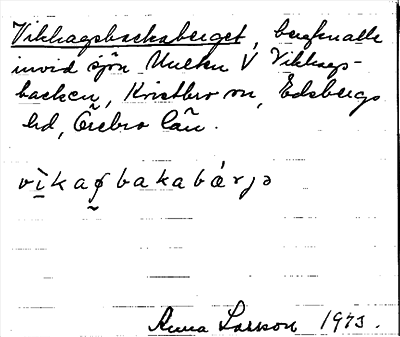 Vikhagsbackaberget, bergknalle
invid sjön Multen V Vikhags-
backen, Kvistbro sn, Edsbergs
hd, Örebro län.
vìkaǥbakabárjə
Anna Larsson 1973.